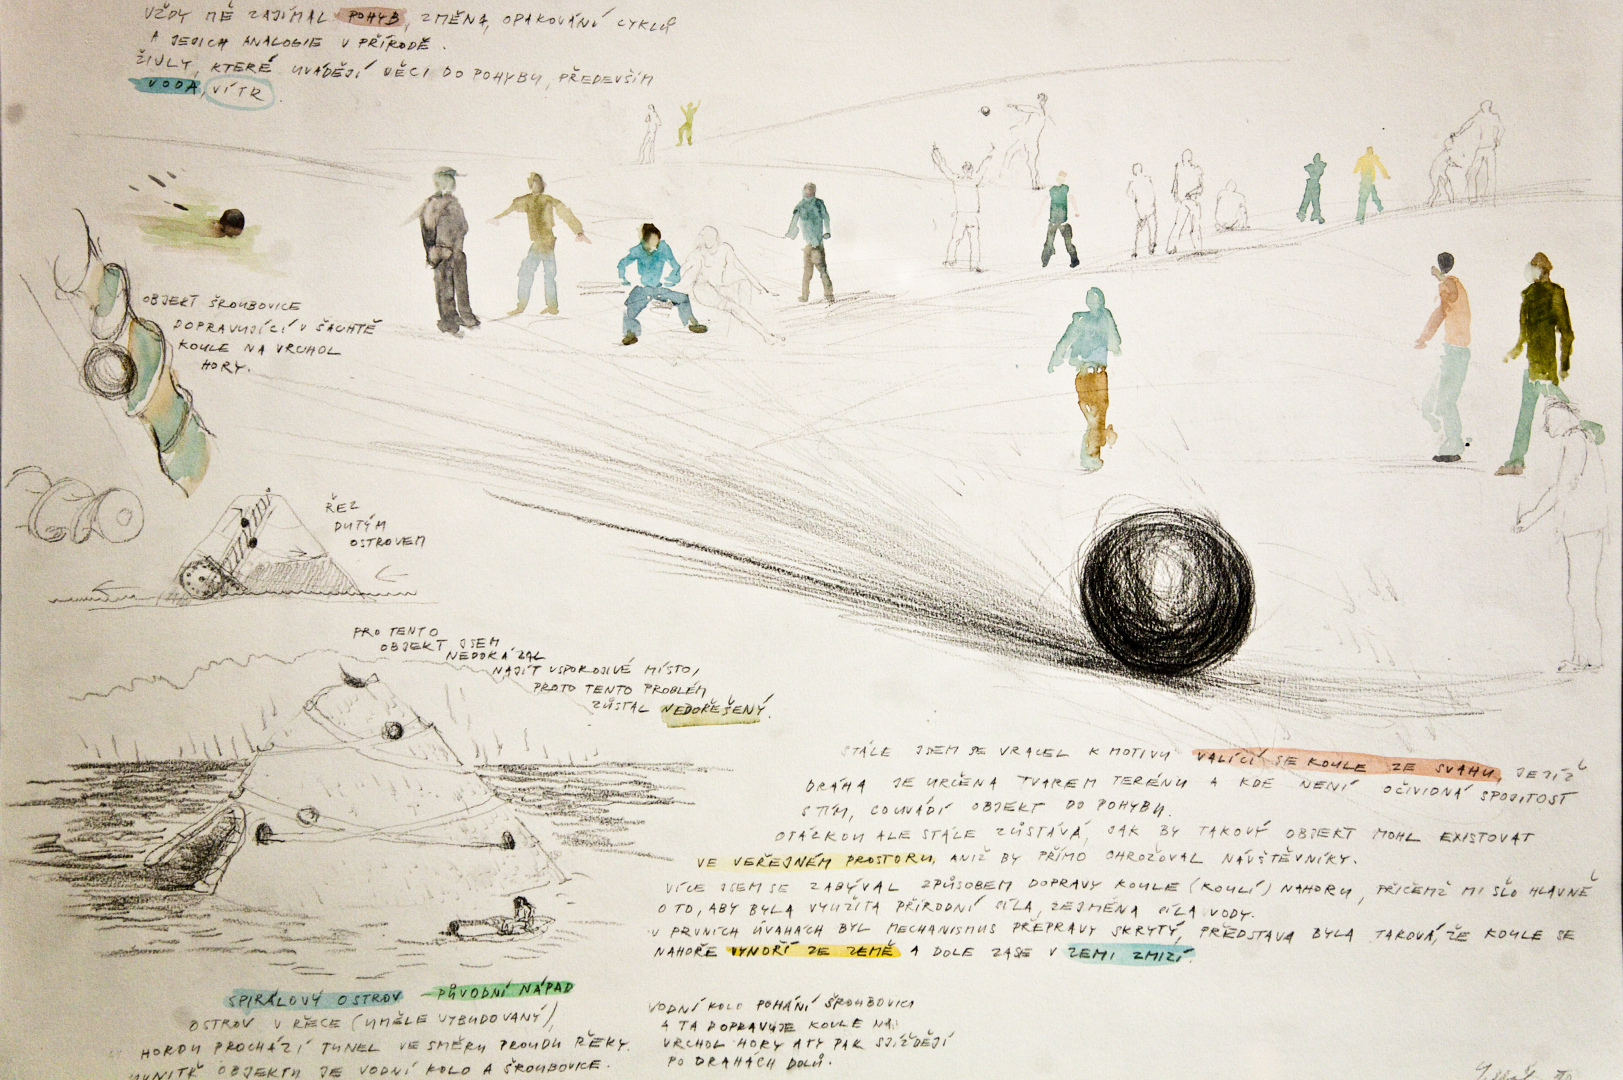 VŽDY MĚ ZAJÍMAL POHYB, ZMĚNA, OPAKOVÁNÍ CYKLŮ
A JEJICH ANALOGIE V PŘÍRODĚ.
ŽIVLY, KTERÉ UVÁDĚJÍ VĚCI DO POHYBU, PŘEDEVŠÍM
VODA, VÍTR.
OBJEKT ŠROUBOVICE
DOPRAVUJÍCÍ V ŠACHTĚ
KOULE NA VRCHOL
HORY.
ŘEZ
DUTÝM
OSTROVEM
PRO TENTO
OBJEKT JSEM
NEDOKÁZAL
NAJÍT USPOKOJIVÉ MÍSTO,
PROTO TENTO PROBLÉM
ZŮSTAL NEDOŘEŠENÝ.
STÁLE JSEM SE VRACEL K MOTIVU VALÍCÍ SE KOULE ZE SVAHU, JEJÍŽ
DRÁHA JE URČENA TVAREM TERÉNU A KDE NENÍ OČIVIDNÁ SPOJITOST
S TÍM, CO UVÁDÍ OBJEKT DO POHYBU.
OTÁZKOU ALE STÁLE ZŮSTÁVÁ, JAK BY TAKOVÝ OBJEKT MOHL EXISTOVAT
VE VEŘEJNÉM PROSTORU, ANIŽ BY PŘÍMO OHROŽOVAL NÁVŠTĚVNÍKY.
VÍCE JSEM SE ZABÝVAL ZPŮSOBEM DOPRAVY KOULE (KOULÍ) NAHORU, PŘIČEMŽ MI ŠLO HLAVNĚ
O TO, ABY BYLA VYUŽITA PŘÍRODNÍ SÍLA, ZEJMÉNA SÍLA VODY.
V PRVNÍCH ÚVAHÁCH BYL MECHANISMUS PŘEPRAVY SKRYTÝ, PŘEDSTAVA BYLA TAKOVÁ, ŽE KOULE SE
NAHOŘE VYNOŘÍ ZE ZEMĚ A DOLE ZASE V ZEMI ZMIZÍ.
SPIRÁLOVÝ OSTROV – PŮVODNÍ NÁPAD
OSTROV V ŘECE (UMĚLE VYBUDOVANÝ),
HOROU PROCHÁZÍ TUNEL VE SMĚRU PROUDU ŘEKY.
UVNITŘ OBJEKTU JE VODNÍ KOLO A ŠROUBOVICE.
VODNÍ KOLO POHÁNÍ ŠROUBOVICI
A TA DOPRAVUJE KOULE NA
VRCHOL HORY ATY PAK SJÍŽDĚJÍ
PO DRAHÁCH DOLŮ.